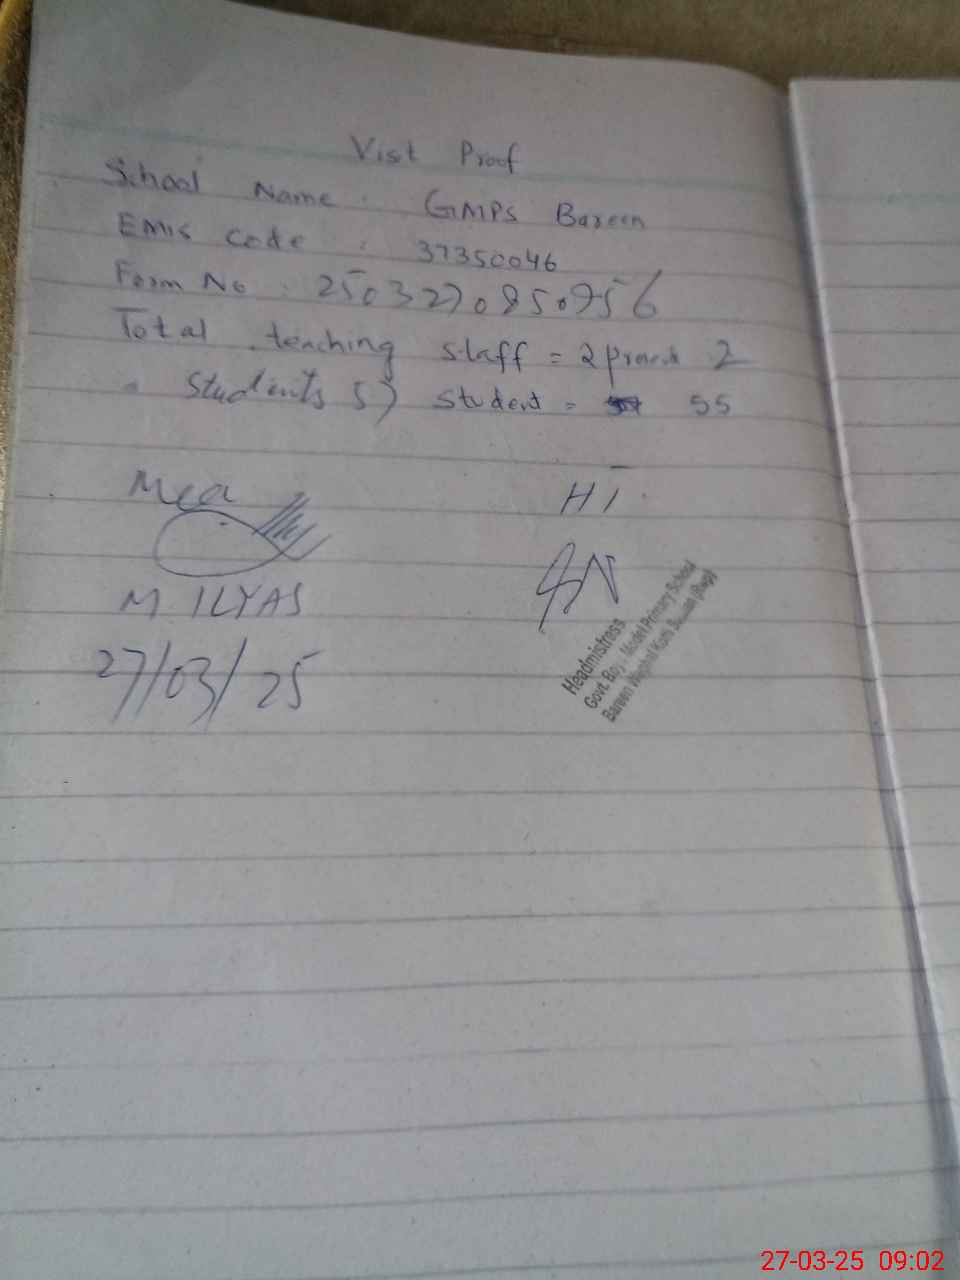 Vist Proof
School Name : GMPS Bareen
EMIS Code : 37350046
Form No : 2503270850956
Total teaching staff = 2 present 2
Students 57 student = 55
Mea
HT
M. ILYAS
27/03/25
Headmistress
Govt. Boys Model Primary School
Bareen
27-03-25 09:02